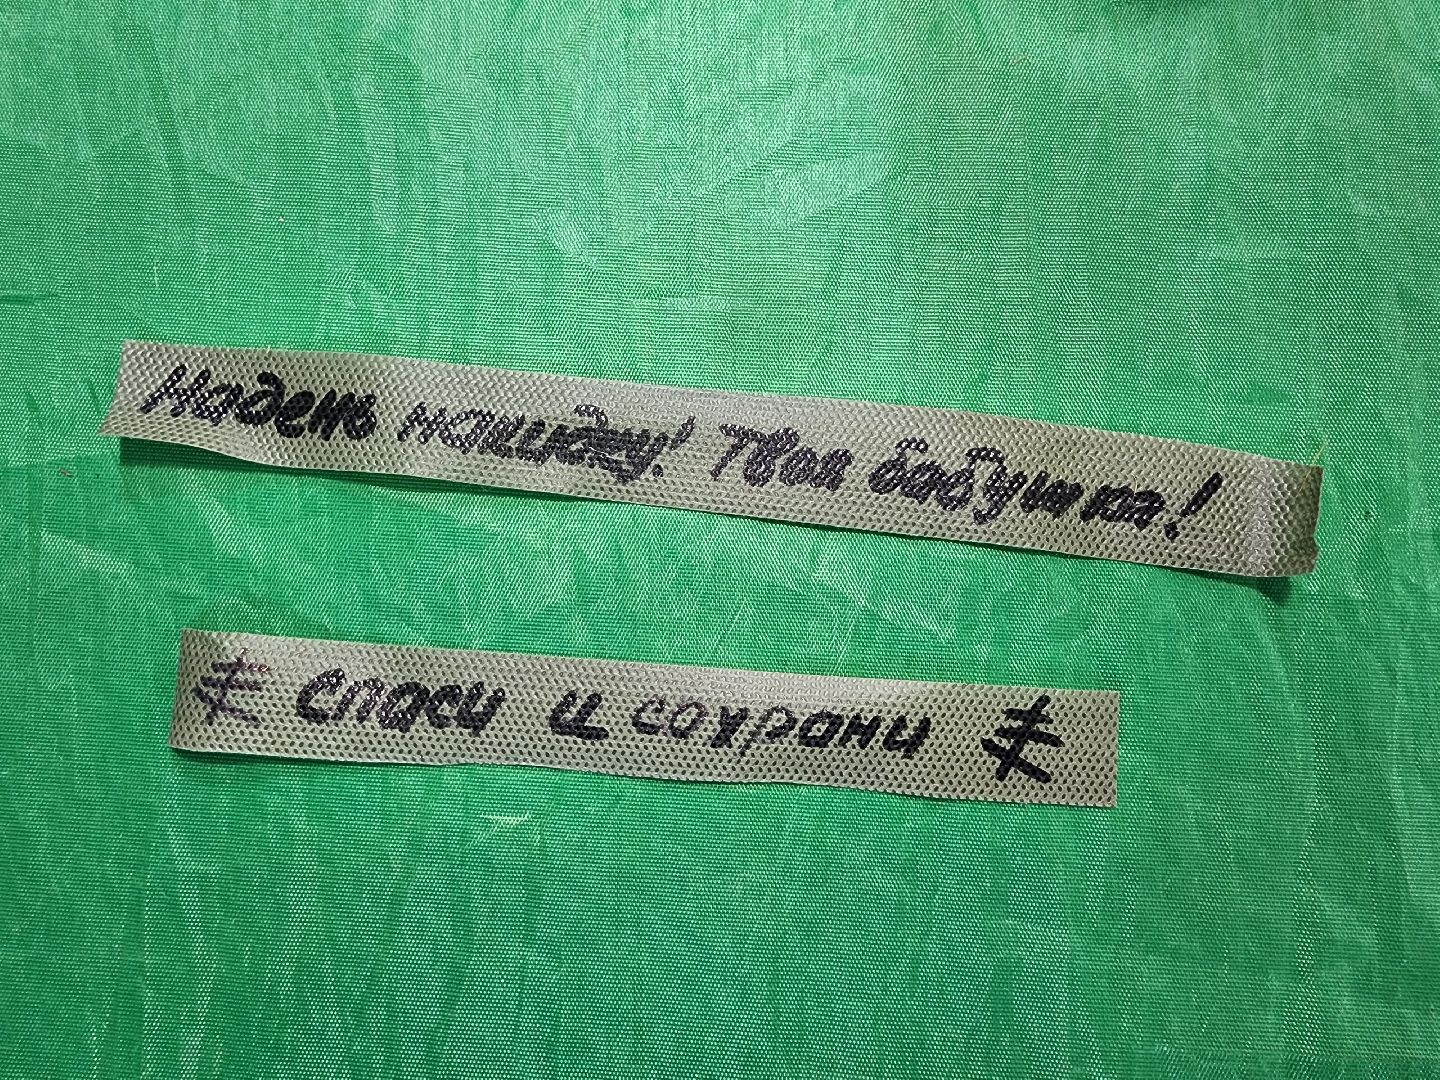 Надень нашу! Твоя бабушка!
Спаси и сохрани